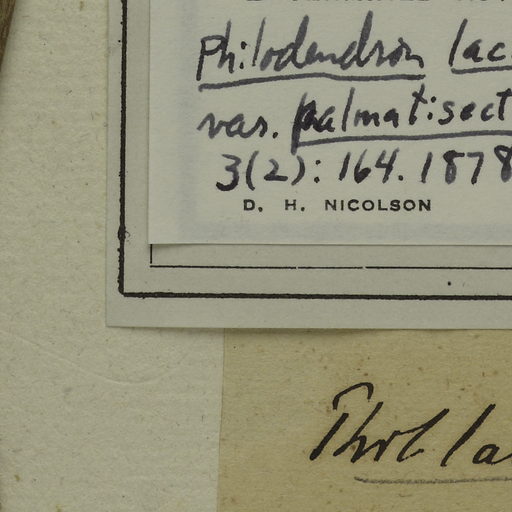 Philodendron lac
var. palmatisect
3(2): 164. 1878
D. H. NICOLSON
Phil la